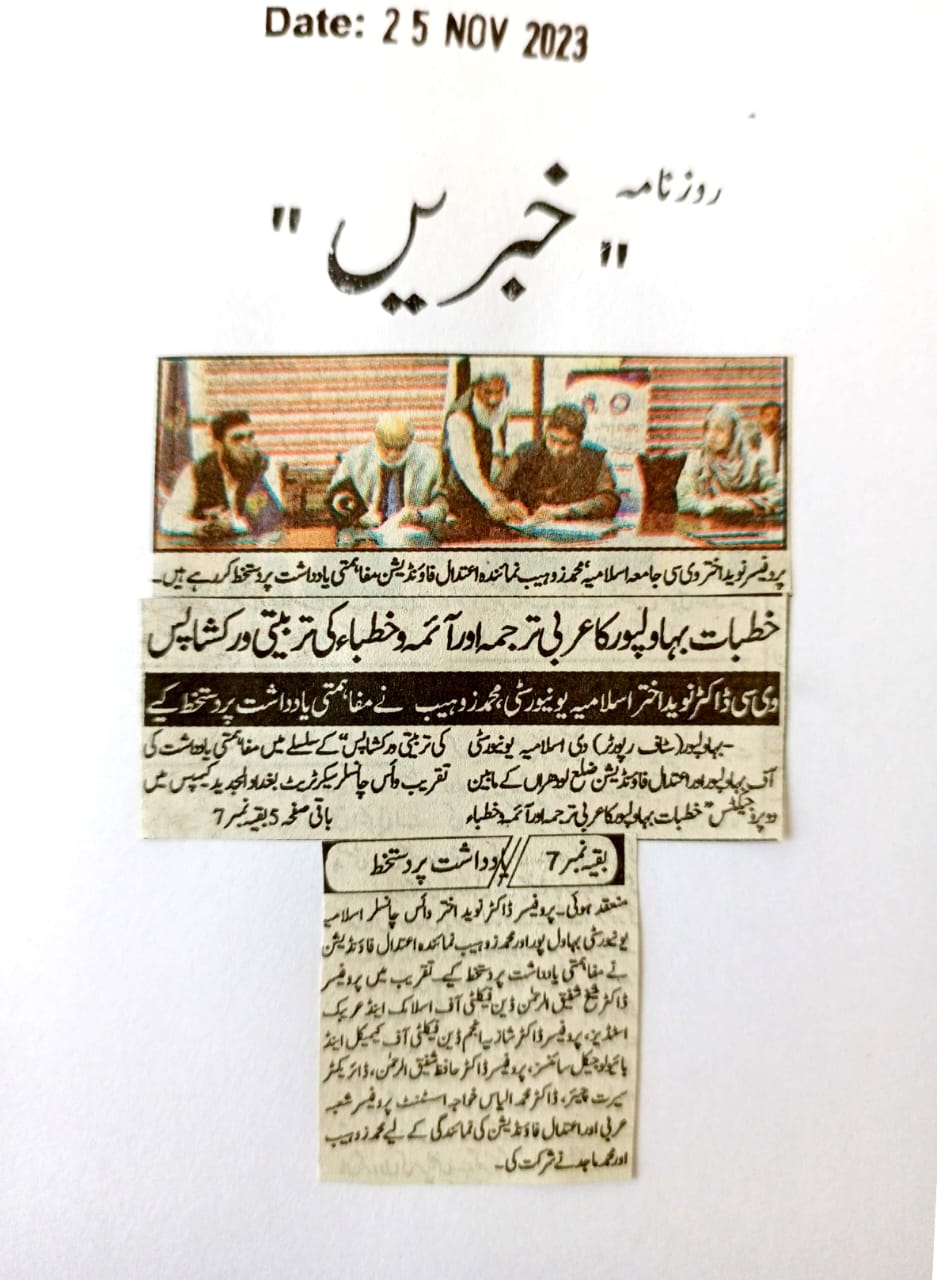 Date: 25 NOV 2023
روزنامہ
"خبریں"
پروفیسر نوید اختر وی سی جامعہ اسلامیہ، محمد زوہیب نمائندہ اعتدال فاؤنڈیشن مفاہمتی یادداشت پر دستخط کر رہے ہیں۔
خطبات بہاولپور کا عربی ترجمہ اور آئمہ و خطباء کی تربیتی ورکشاپس
وی سی ڈاکٹر نوید اختر اسلامیہ یونیورسٹی، محمد زوہیب نے مفاہمتی یادداشت پر دستخط کیے
بہاولپور (سٹاف رپورٹر) دی اسلامیہ یونیورسٹی
آف بہاولپور اور اعتدال فاؤنڈیشن ضلع لودھراں کے مابین
دو پروجیکٹس "خطبات بہاولپور کا عربی ترجمہ اور آئمہ و خطباء
کی تربیتی ورکشاپس" کے سلسلے میں مفاہمتی یادداشت کی
تقریب وائس چانسلر سیکرٹریٹ بغداد الجدید کیمپس میں
باقی صفحہ 5 بقیہ نمبر 7
بقیہ نمبر 7 // یادداشت پر دستخط
منعقد ہوئی۔ پروفیسر ڈاکٹر نوید اختر وائس چانسلر اسلامیہ
یونیورسٹی بہاول پور اور محمد زوہیب نمائندہ اعتدال فاؤنڈیشن
نے مفاہمتی یادداشت پر دستخط کیے۔ تقریب میں پروفیسر
ڈاکٹر شیخ شفیق الرحمٰن ڈین فیکلٹی آف اسلامک اینڈ عریبک
اسٹڈیز، پروفیسر ڈاکٹر شازیہ انجم ڈین فیکلٹی آف کیمیکل اینڈ
بائیولوجیکل سائنسز، پروفیسر ڈاکٹر حافظ شفیق الرحمٰن، ڈائریکٹر
سیرت چیئر، ڈاکٹر محمد الیاس خواجہ اسسٹنٹ پروفیسر شعبہ
عربی اور اعتدال فاؤنڈیشن کی نمائندگی کے لیے محمد زوہیب
اور محمد ماجد نے شرکت کی۔